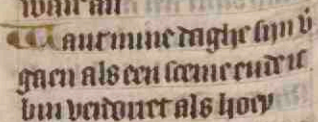 want mine daghe sijn v̄
gaen als een sceme ende ic
bin verdorret als hoey